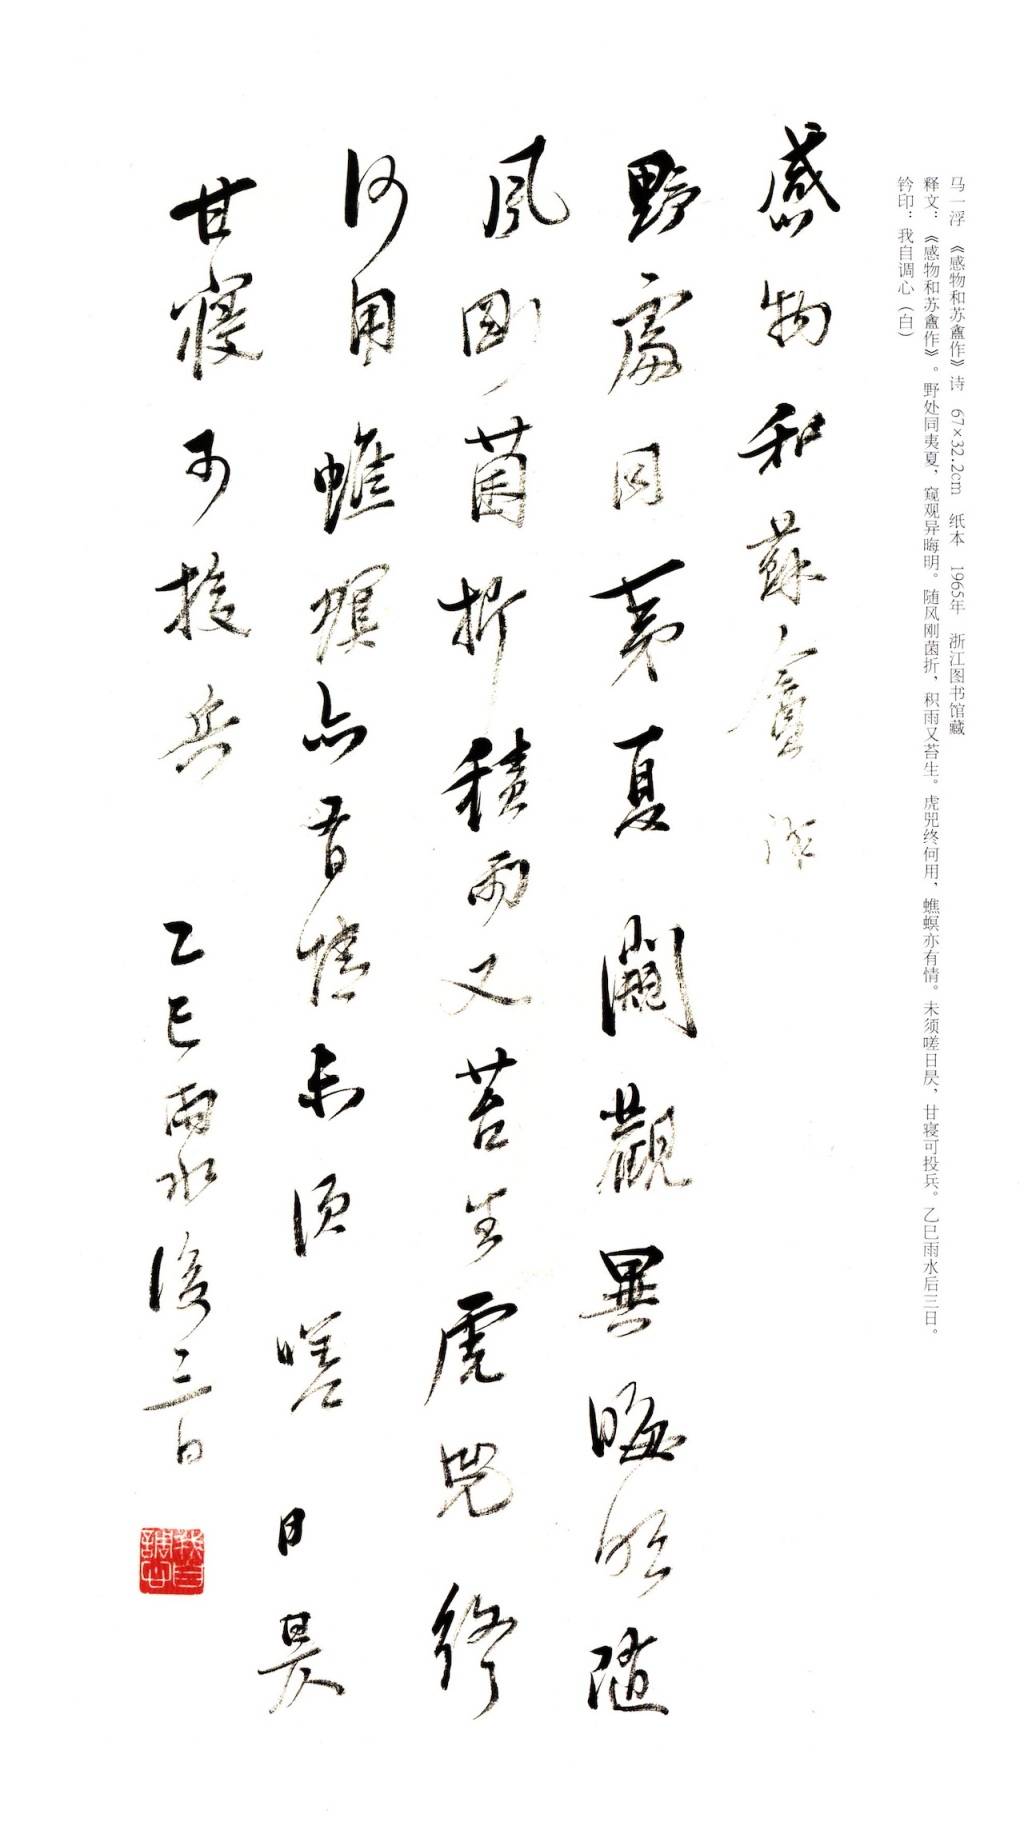 马一浮　《感物和苏盦作》诗　67×32.2cm　纸本　1965年　浙江图书馆藏
释文：《感物和苏盦作》。野处同夷夏，窥观异晦明。随风刚菌折，积雨又苔生。虎兕终何用，蟭螟亦有情。未须嗟日昃，甘寝可投兵。乙巳雨水后三日。
钤印：我自调心（白）
感物和蘇盦作
野處同夷夏闚觀異晦明随
風剛菌折積雨又苔生虎兕终
何用蟭螟亦有情未須嗟日昃
甘寢可投兵　乙巳雨水後三日
我自調心